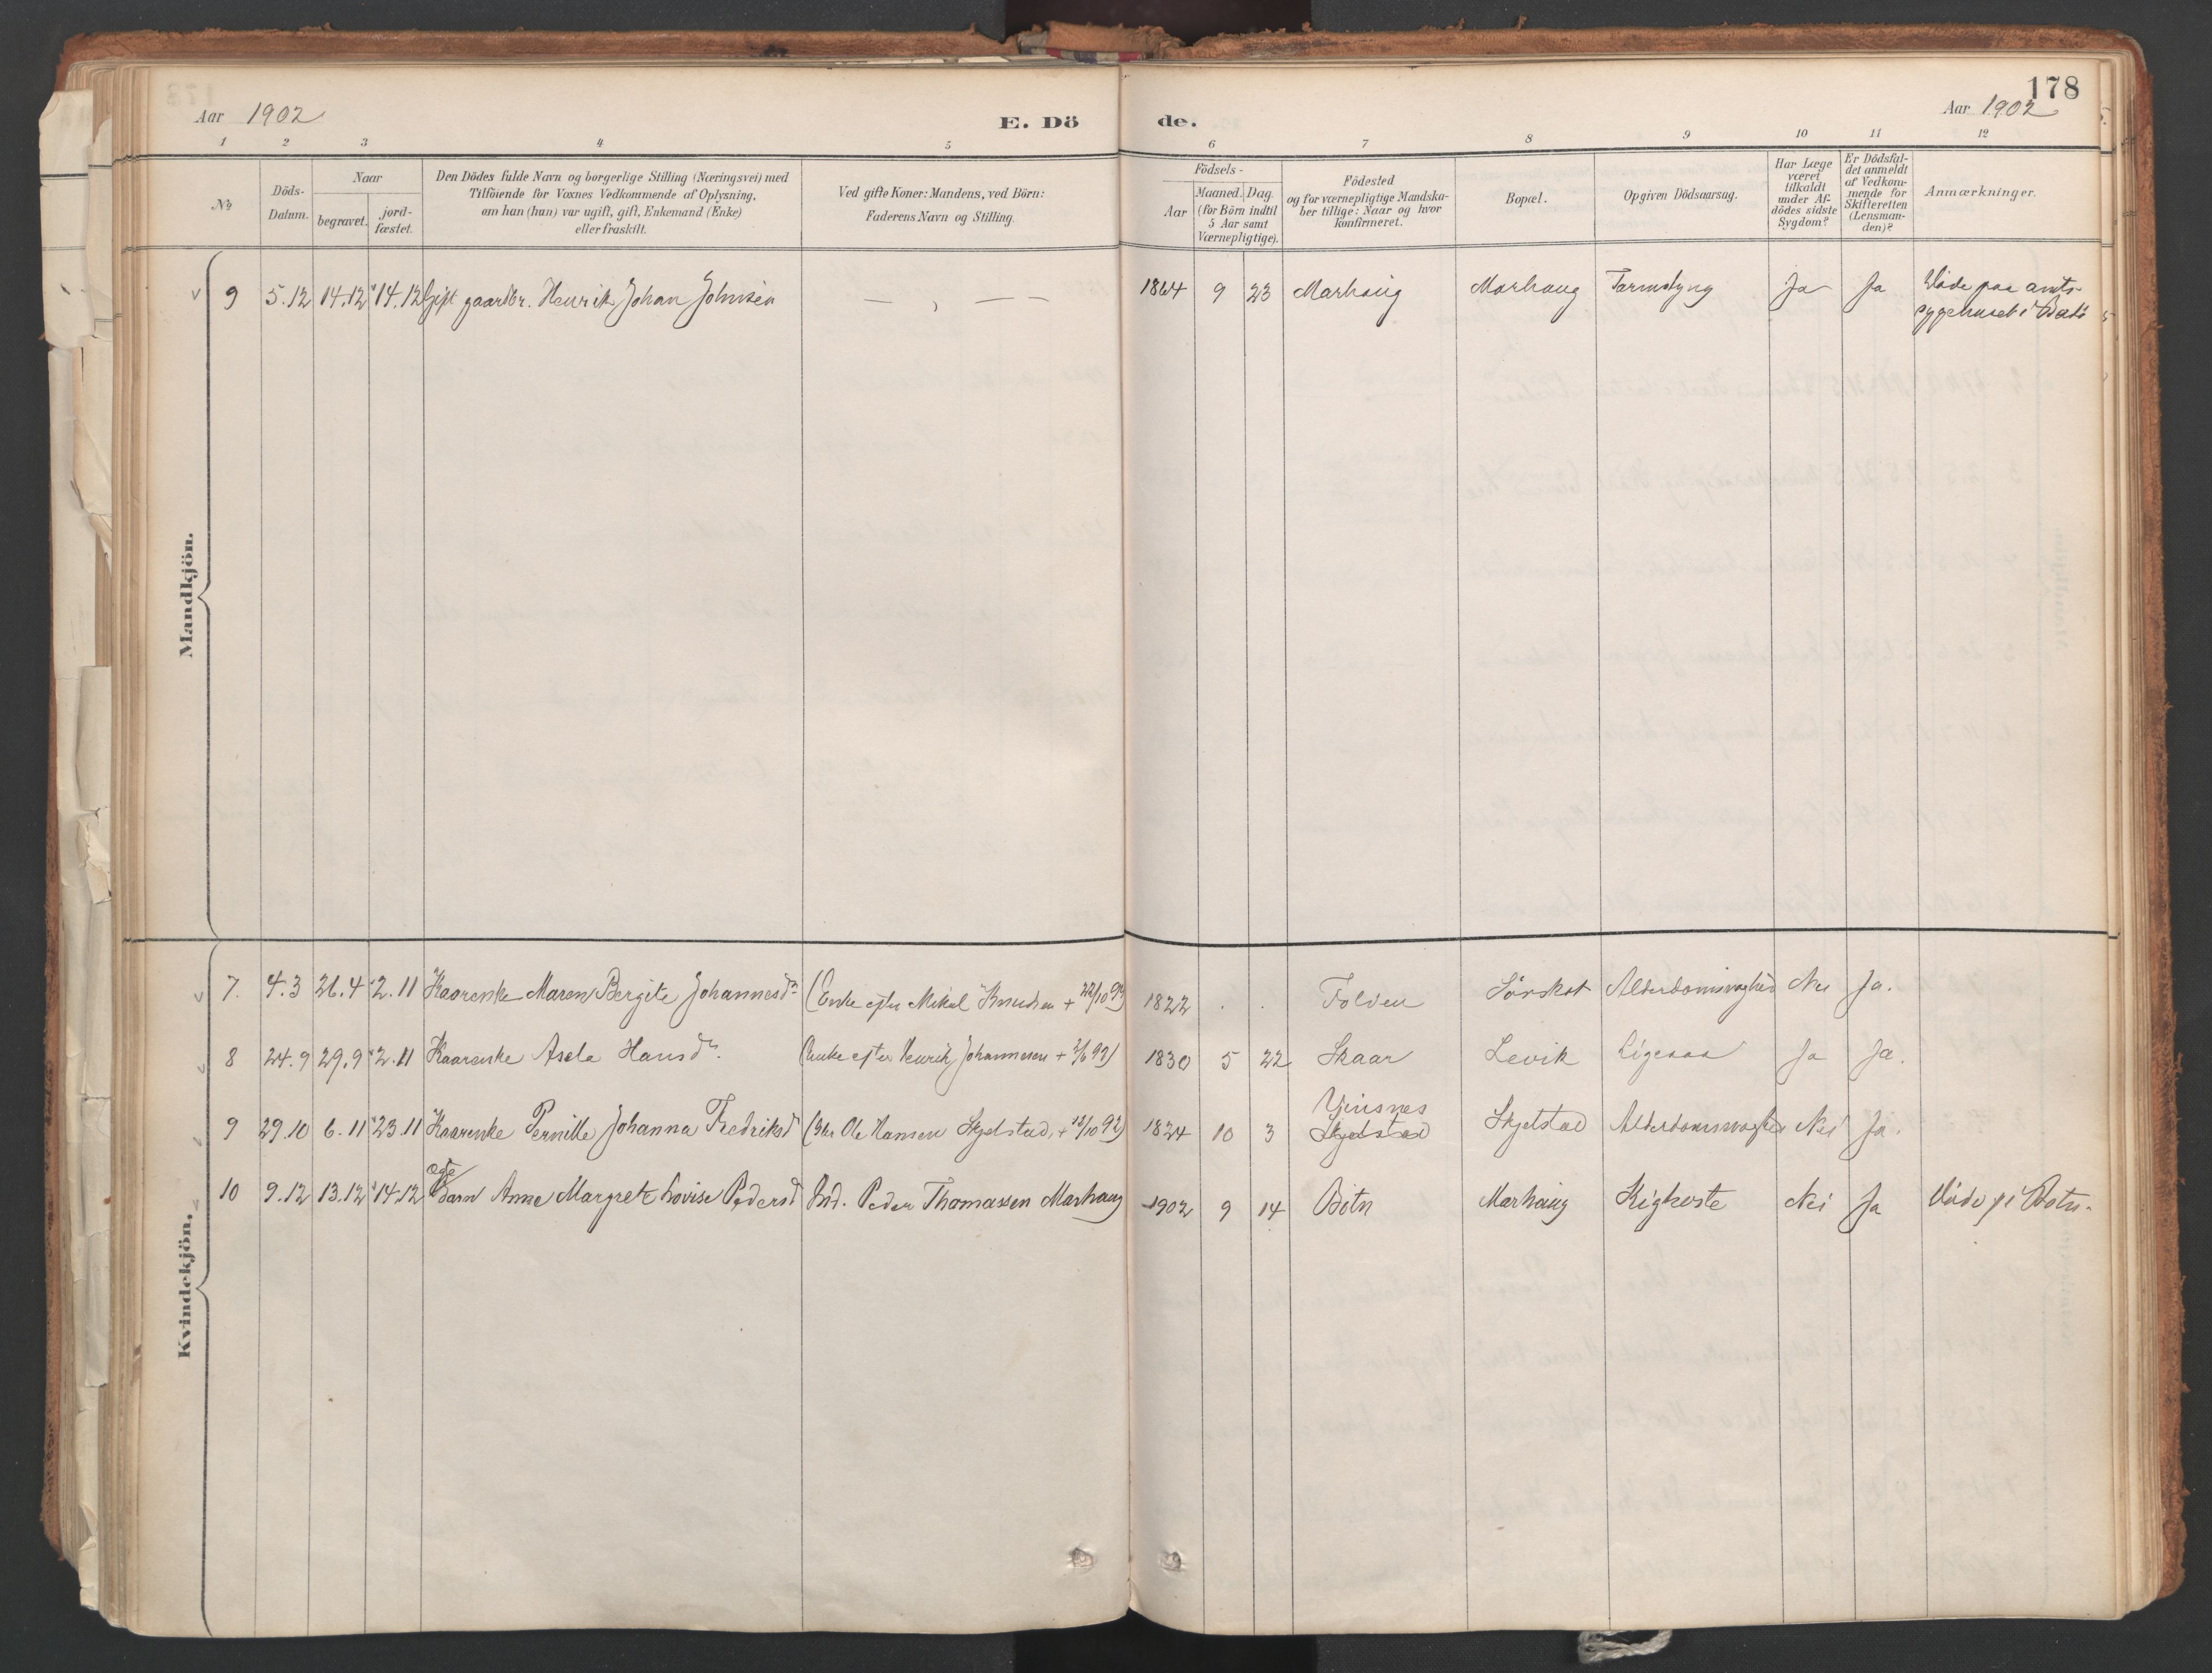 178
Aar 1902
E. Dö
de.
Aar 1902
1 2 3 4 5 6 7 8 9 10 11 12
No
Döds-
Datum.
Naar
begravet.
jord-
fæstet.
Den Dödes fulde Navn og borgerlige Stilling (Næringsvei) med
Tilföiende for Voxnes Vedkommende af Oplysning,
om han (hun) var ugift, gift, Enkemand (Enke)
eller fraskilt.
Ved gifte Koner: Mandens, ved Börn:
Faderens Navn og Stilling.
Födsels-
Aar
Maaned. Dag.
(for Börn indtil
5 Aar samt
Værnepligtige).
Födested
og for værnepligtige Mandska-
ber tillige: Naar og hvor
konfirmeret.
Bopæl.
Opgiven Dödsaarsag.
Har Læge
været
tilkaldt
under Af-
dödes sidste
Sygdom?
Er Dödsfal-
det anmeldt
af Vedkom-
mende for
Skifteretten
(Lensman-
den)?
Anmærkninger.
Mandkjön.
9 5.12 14.12 14.12 Gift gaardbr. Henrik Johan Johnsen — , — — 1864 9 23 Marhaug Marhaug Tarmslyng Ja Ja Döde paa amts-
sygehuset i Bodö
Kvindekjön.
7. 4.3 26.4 2.11 Kaarenke Maren Bergite Johannesdr (Enke efter Mikal Knudsen + 22/10 99) 1822 . . Folden Sörskot Alderdomssvaghed Nei Ja.
8 24.9 29.9 2.11 Kaarenke Asela Hansdr. (Enke efter Henrik Johannesen + 2/6 92) 1830 5 22 Skaar Levik Ligesaa Ja Ja.
9 29.10 6.11 23.11 Kaarenke Pernille Johanna Fredriksd Ole Hansen Skjelstad, + 12/10 92) 1824 10 3 Skjelstad Skjelstad Alderdomssvaghed Nei Ja.
10 9.12 13.12 14.12 ægte Barn Anne Margrete Lovise Pedersd Ind. Peder Thomassen Marhaug 1902 9 14 Botn Marhaug Kighoste Nei Ja Döde i Botn.